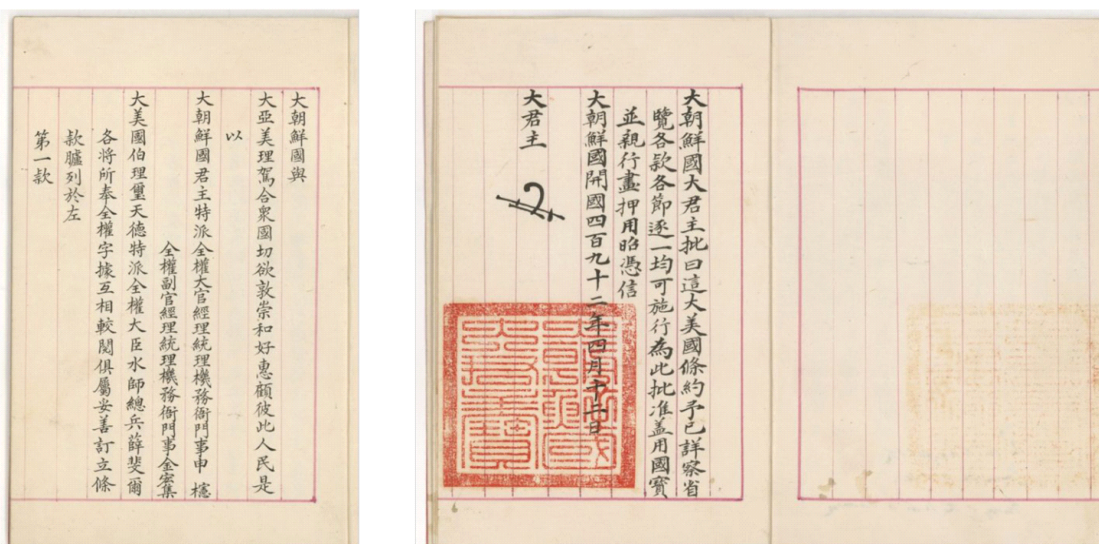 大朝鮮國與
大亞美理駕合衆國切欲敦崇和好惠顧彼此人民是
以
大朝鮮國君主特派全權大官經理統理機務衙門事申櫶
全權副官經理統理機務衙門事金宏集
大美國伯理璽天德特派全權大臣水師總兵薛斐爾
各將所奉全權字據互相較閱俱屬妥善訂立條
款臚列於左
第一款
大朝鮮國大君主批曰這大美國條約予已詳察省
覽各款各節逐一均可施行為此批准盖用國寶
並親行畫押用昭憑信
大朝鮮國開國四百九十二年四月十二日
大君主